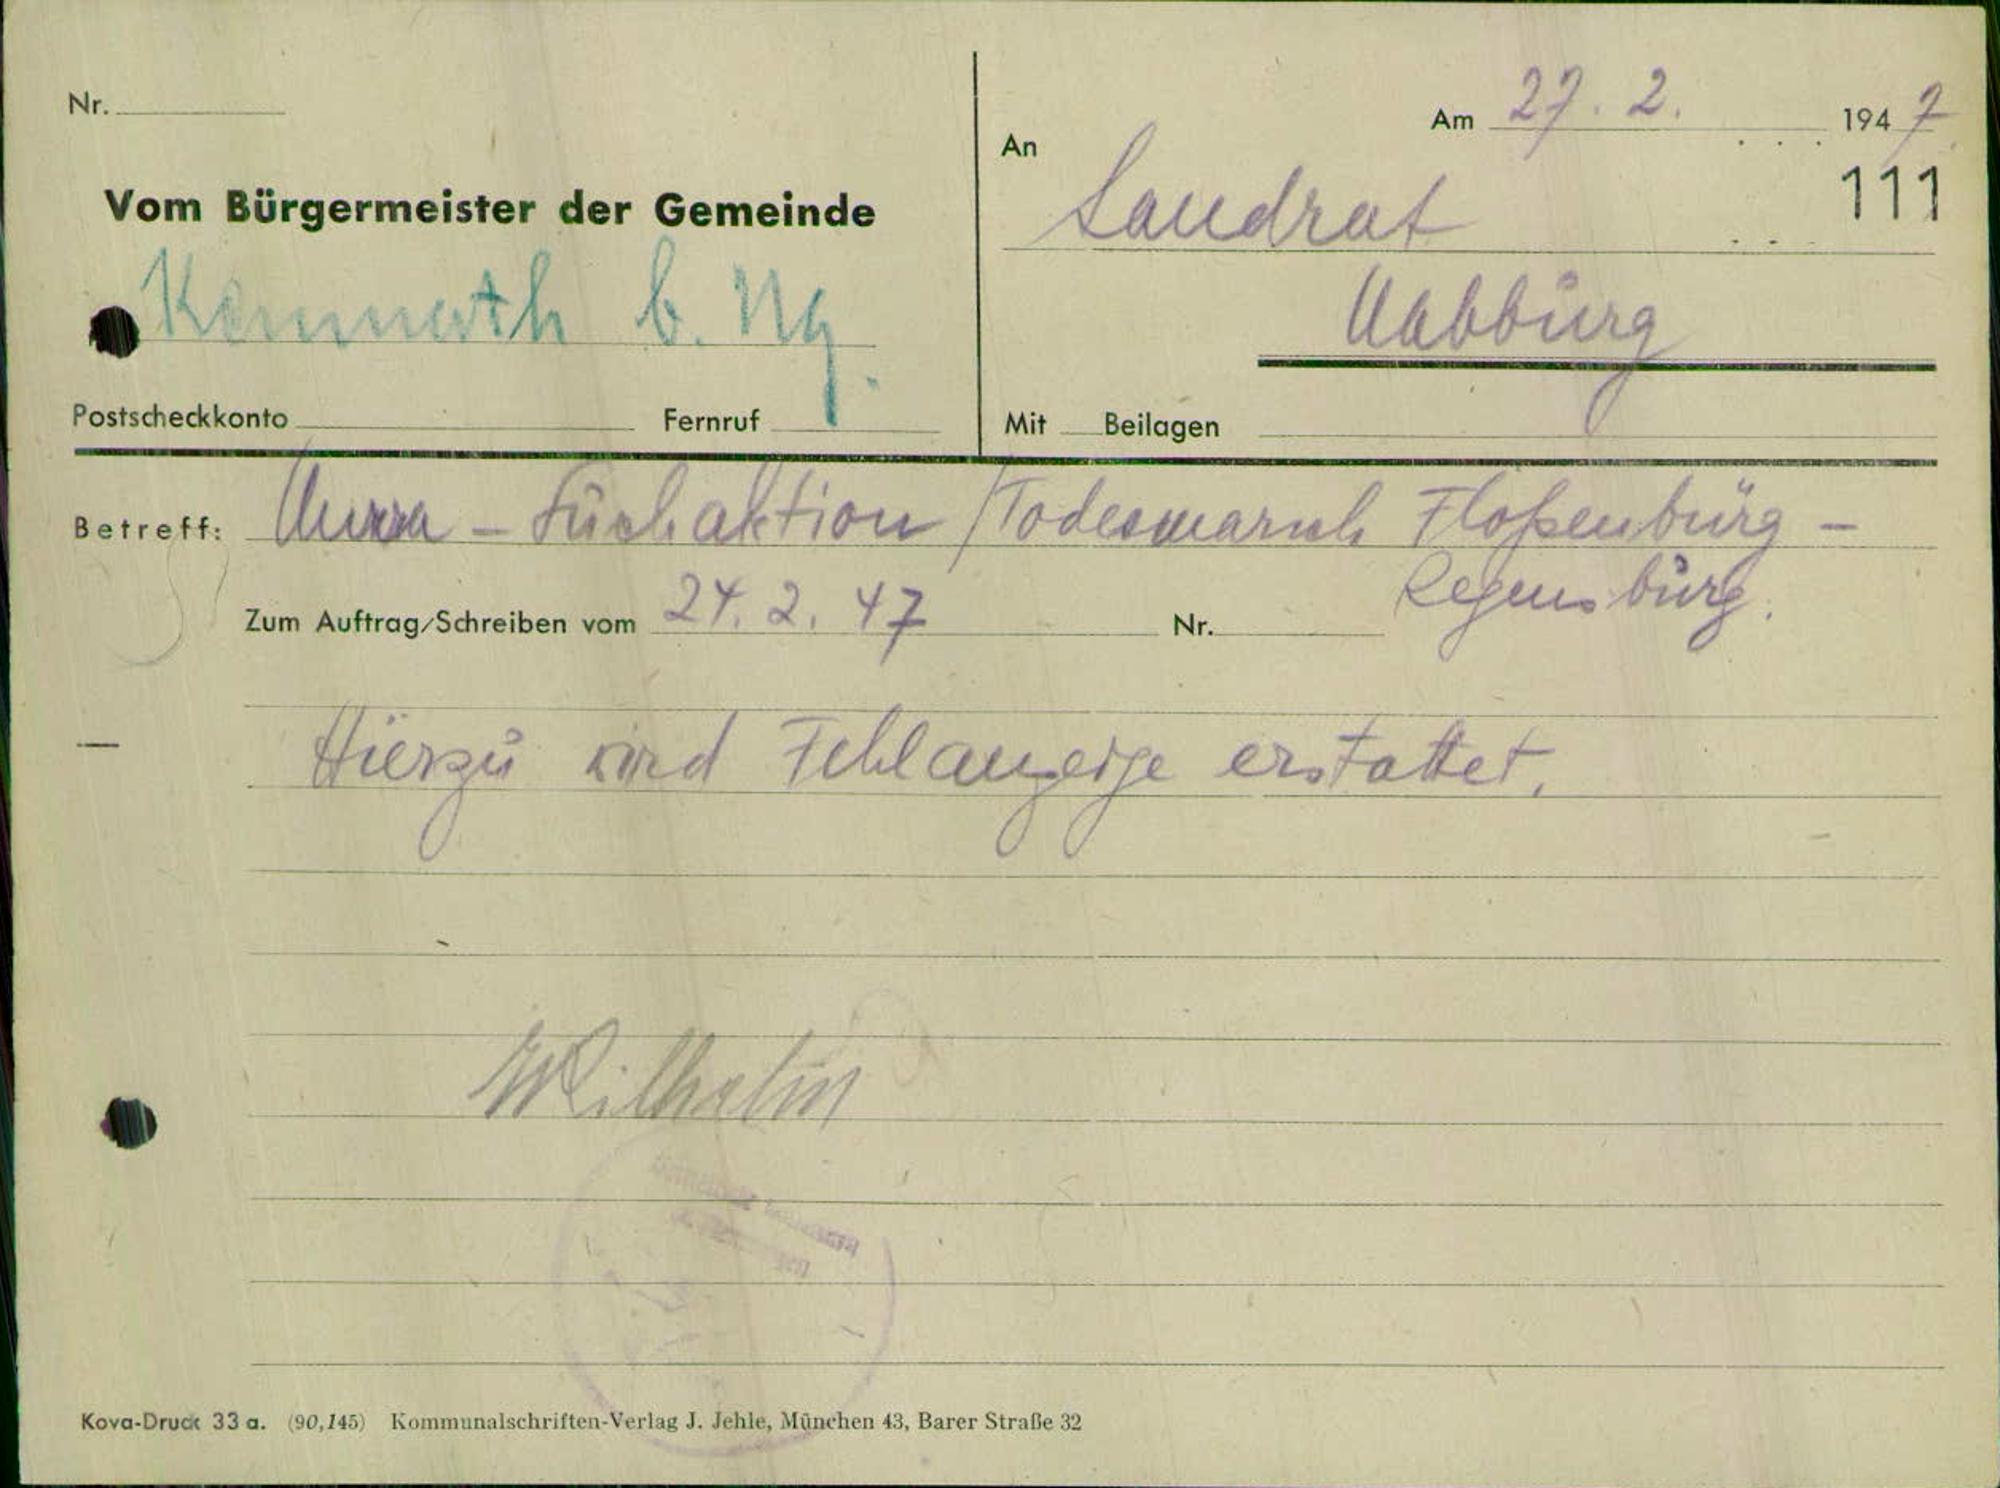 Nr.
Vom Bürgermeister der Gemeinde
Kemnath b. Ng.
Postscheckkonto Fernruf
Am 27. 2. 1947
An
Landrat
111
Nabburg
Mit Beilagen
Betreff: Unrra - Suchaktion / Todesmarsch Floßenbürg -
Regensburg.
Zum Auftrag/Schreiben vom 24. 2. 47 Nr.
Hierzu wird Fehlanzeige erstattet.
Wilhelm
Kova-Druck 33 a. (90,145) Kommunalschriften-Verlag J. Jehle, München 43, Barer Straße 32